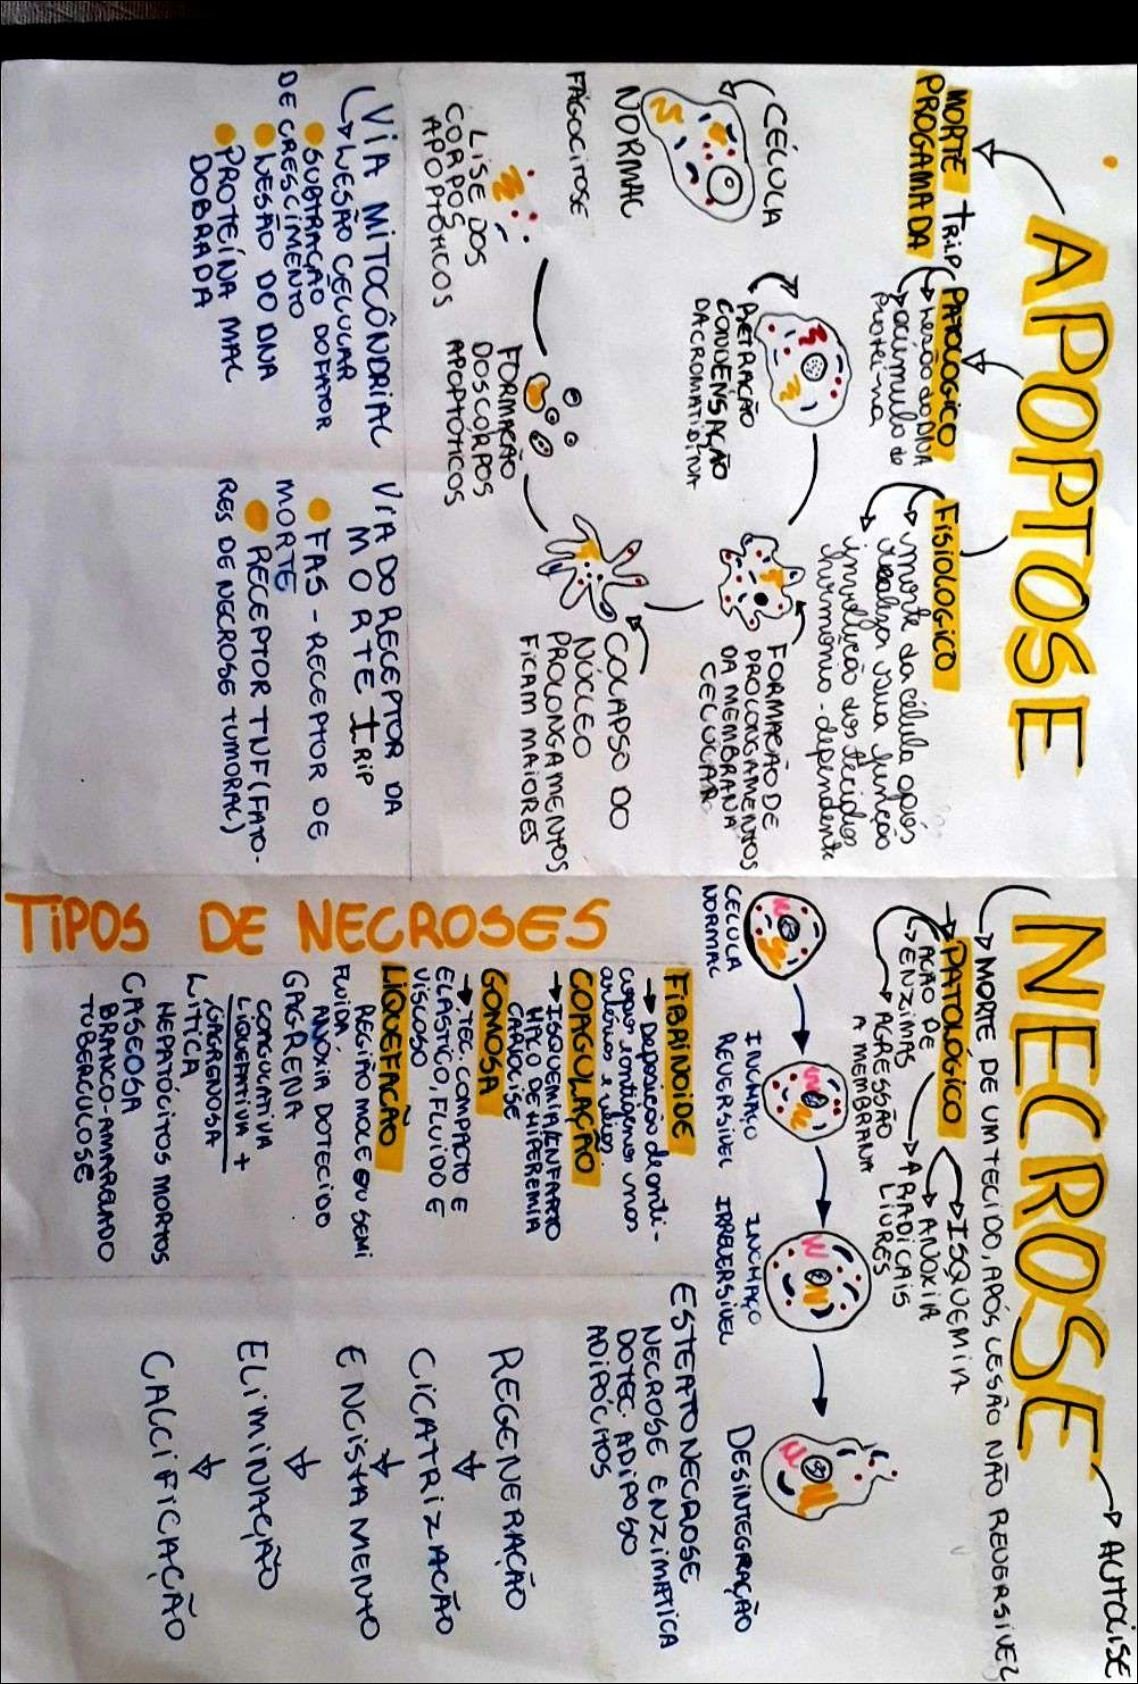 APOPTOSE
MORTE
PROGAMADA
tRIP
PATOLÓGICO
lesão do DNA
acúmulo de
proteí-na
FISIOLOGICO
morte da célula após
realizar sua função
involução dos tecidos
hurmônio-dependente
CÉLULA
NORMAL
RETRAÇÃO
CONDENSAÇÃO
DA CROMATIDINA
FORMAÇÃO DE
PROLONGAMENTOS
DA MEMBRANA
CELULAR
COLAPSO DO
NÚCLEO
PROLONGAMENTOS
FICAM MAIORES
FORMAÇÃO
DOS CORPOS
APOPTÓTICOS
LISE DOS
CORPOS
APOPTÓTICOS
FAGOCITOSE
VIA MITOCÔNDRIAL
LESÃO CELULAR
SUBTRAÇÃO DO FATOR
DE CRESCIMENTO
LESÃO DO DNA
PROTEÍNA MAL
DOBRADA
VIA DO RECEPTOR DA
MORTE tRIP
FAS - RECEPTOR DE
MORTE
RECEPTOR TNF (FATO-
RES DE NECROSE TUMORAL)
NECROSE
AUTOLISE
MORTE DE UM TECIDO, APÓS LESÃO NÃO REVERSIVEL
PATOLÓGICO
ISQUEMIA
ANÓXIA
RADICAIS
LIVRES
AÇÃO DE
ENZIMAS
AGRESSÃO
A MEMBRANA
CELULA
NORMAL
INCHAÇO
REVERSIVEL
INCHAÇO
IRREVERSIVEL
DESINTEGRAÇÃO
TIPOS DE NECROSES
FIBRINOIDE
Deposição de anti-
corpos contígenos nas
artérias e veias.
COAGULAÇÃO
ISQUEMIA/INFARTO
HALO DE HIPEREMIA
CARIOLISE
GOMOSA
TEC. COMPACTO E
ELASTICO, FLUIDO E
VISCOSO
LIQUEFAÇÃO
REGIÃO MOLE OU SEMI
FLUÍDA
ANÓXIA DO TECIDO
GAGRENA
COAGULATIVA
LIQUEFATIVA +
GAGRENOSA
LITICA
HEPATÓCITOS MORTOS
CASEOSA
BRANCO-AMARELADO
TUBERCULOSE
ESTEATONECROSE
NECROSE ENZIMÁTICA
DO TEC. ADIPOSO
ADIPÓCITOS
REGENERAÇÃO
CICATRIZAÇÃO
ENCISTAMENTO
ELIMINAÇÃO
CALCIFICAÇÃO